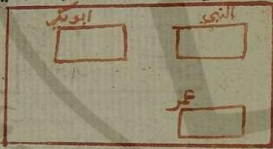 النبي ابو بكر
عمر